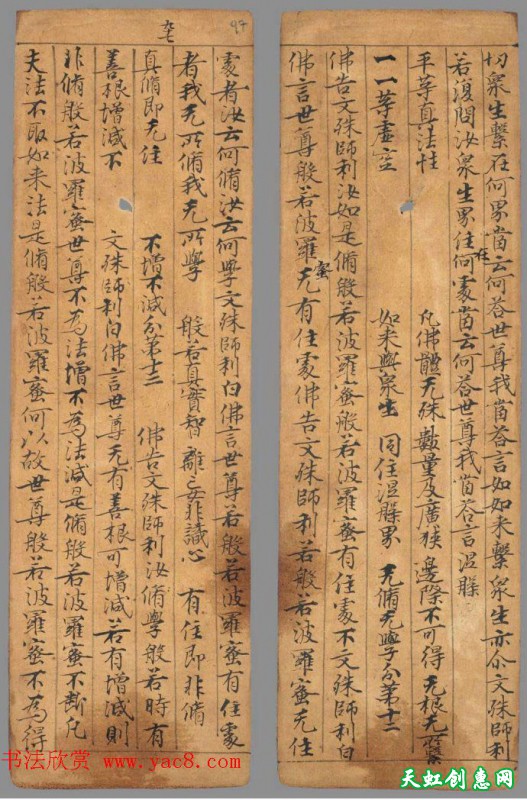 切衆生繫在何界當云何荅世尊我當荅言如如來繫衆生亦尒文殊師利
若復問汝衆生界住在何處當云何荅世尊我當荅言涅槃
平等真法性 凡佛體无殊 數量及廣狹 邊際不可得 无根无繫
一一等虛空 如來與衆生 同住涅槃界 无脩无學分第十二
佛告文殊師利汝如是脩般若波羅蜜般若波羅蜜有住處不文殊師利白
佛言世尊般若波羅蜜无有住處佛告文殊師利若般若波羅蜜无住
97
處者汝云何脩汝云何學文殊師利白佛言世尊若般若波羅蜜有住處
者我无所脩我无所學 般若真實智 離妄非識心 有住即非脩
真脩即无住 不增不減分第十三 佛告文殊師利汝脩學般若時有
善根增減不 文殊師利白佛言世尊无有善根可增減若有增減則
非脩般若波羅蜜世尊不為法增不為法減是脩般若波羅蜜不斷凡
夫法不取如来法是脩般若波羅蜜何以故世尊般若波羅蜜不為得
书法欣赏
www.yac8.com
天虹创惠网